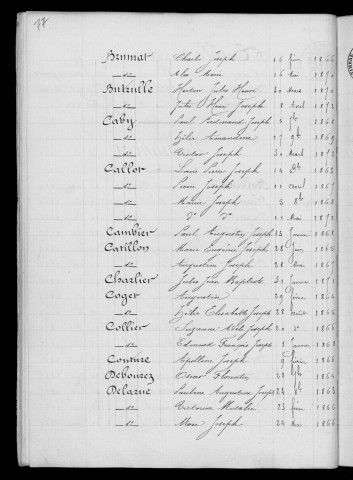 Brunnat Charles Joseph 16 1866
—d° Marie 16 Mai 1870
Butruille Jules Henri 30 Mars 1870
—d° Jules Henri Joseph 8 Avril 1872
Caby Paul Ferdinand Joseph 9 7bre 1868
—d° Zélie Amandine 17 9bre 1869
—d° Victor Joseph 30 Avril 1872
Callot Louis Pierre Joseph 14 1863
—d° Pierre Joseph 11 Avril 1867
—d° Marie Joseph 3 8bre 1868
—d° d° d° 11 Mai 1872
Cambier Paul Augustin Joseph 12 Janvier 1868
Carillon Marie Joseph 28 1865
—d° Augustine Joseph 21 Mai 1867
Charlier Jules Jean Baptiste 31 Janvier 1871
Coget Augustin 29 février 1864
—d° Zélie Elisabeth Joseph 28 1866
Collier Suzanne Adèle Joseph 20 d° 1864
—d° Edmond François Joseph 1 Janvier 1868
Couture Apolline Joseph 9 février 1866
Debourez Omer Florentin 23 1864
Delarue Pauline Augustine Joseph 24 1863
—d° Victorine Natalie 23 février 1866
—d° Joseph 24 Mai 1868